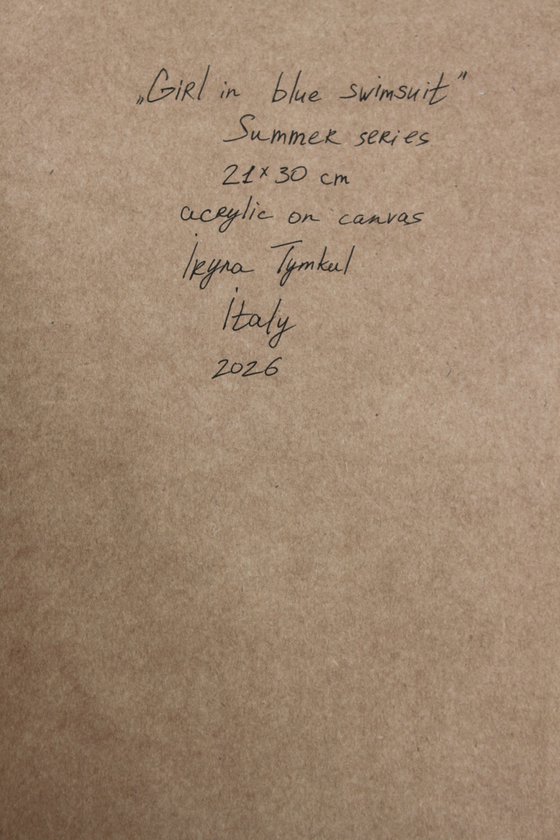 „Girl in blue swimsuit"
Summer series
21×30 cm
acrylic on canvas
Iryna Tymkul
Italy
2026